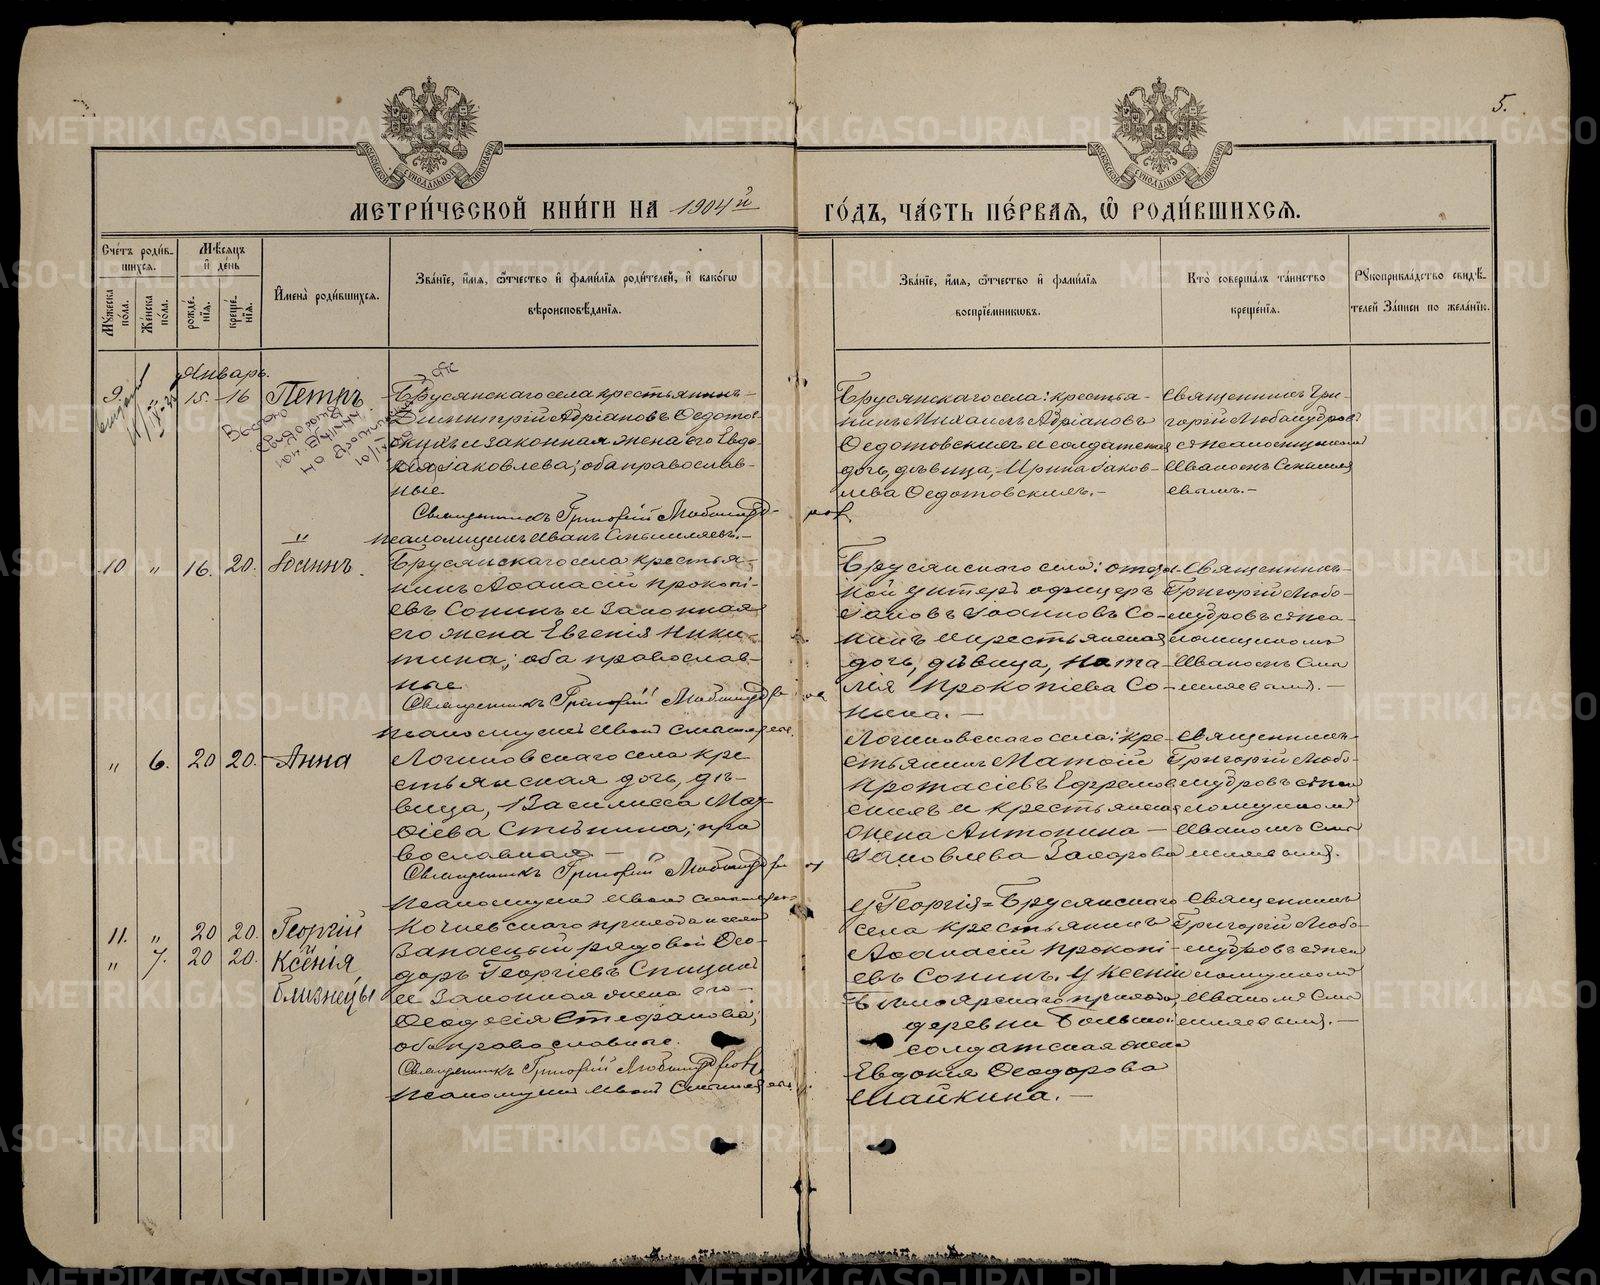 5.
МЕТРИ́ЧЕСКОЙ КНИ́ГИ НА 1904й ГО́ДЪ, ЧА́СТЬ ПЕ́РВАѦ, Ѡ РОДИ́ВШИХСѦ.
Сче́тъ роди́вшихсѧ.
Мꙋ́жеска по́ла.
Же́нска по́ла.
Мѣ́сѧцъ и҆ де́нь
рожде́нїѧ.
креще́нїѧ.
И҆мена̀ роди́вшихсѧ.
Зва́нїе, и҆́мѧ, ѻ҆́тчество и҆ фами́лїѧ роди́телей, и҆ како́гѡ
вѣроисповѣ́данїѧ.
Зва́нїе, и҆́мѧ, ѻ҆́тчество и҆ фами́лїѧ
воспрїе́мникѡвъ.
Кто̀ соверша́лъ та́инство
креще́нїѧ.
Рꙋкоприкла́дство свидѣ́телей за́писи по жела́нїю.
Январь.
9. " 15. 16 Петръ
Брусянскаго села крестьянинъ
Димитрій Адріановъ Ѳедотов-
скихъ и законная жена его Евдо-
кія Іаковлева; оба православ-
ные
Священникъ Григорій Любомудров
псаломщикъ Иванъ Смышляевъ.-
Брусянскаго села: крестья-
нинъ Михаилъ Адріановъ
Ѳедотовскихъ и солдатская
дочь, дѣвица, Ирина Іаков-
лева Ѳедотовскихъ.-
Священникъ Гри-
горій Любомудровъ
съ псаломщикомъ
Иваномъ Смышля-
евымъ.-
10 " 16. 20. Іоаннъ
Брусянскаго села крестья-
нинъ Аѳанасій Прокопі-
евъ Сонинъ и законная
его жена Евгенія Ники-
тина; оба православ-
ные
Священникъ Григорій Любомудров
псаломщикъ Иванъ Смышляевъ.
Брусянскаго села:
унтеръ офицеръ
Іаковъ Іоанновъ Со-
нинъ и крестьянская
дочь, дѣвица, Ната-
лія Прокопіева Со-
нина.-
Священникъ
Григорій Любо-
мудровъ съ пса-
ломщикомъ
Иваномъ Смы-
шляевымъ.-
" 6. 20 20. Анна
Логиновскаго села кре-
стьянская дочь, дѣ-
вица, Василисса Мат-
ѳіева Стѣнина; пра-
вославная.-
Священникъ Григорій Любомудров
псаломщикъ Иванъ Смышляевъ
Логиновскаго села: кре-
стьянинъ Матѳій
Протасіевъ Ефремов-
скихъ и крестьянская
жена Антонина
Іаковлева Захарова
Священникъ
Григорій Любо-
мудровъ съ пса-
ломщикомъ
Иваномъ Смы-
шляевымъ.
11. " 20 20. Георгій
" 7. 20 20. и Ксенія
близнецы
Кочневскаго прихода и села
запасный рядовой Ѳео-
доръ Георгіевъ Спицинъ
и законная жена его
Ѳеодосія Стефанова;
оба православные.
Священникъ Григорій Любомудровъ
псаломщикъ Иванъ Смышляевъ.
У Георгія=Брусянскаго
села крестьянинъ
Аѳанасій Прокопі-
евъ Сонинъ. У Ксеніи
прихода,
деревни Большой
солдатская жена
Евдокія Ѳеодорова
Шайкина.-
Священникъ
Григорій Любо-
мудровъ съ пса-
ломщикомъ
Иваномъ Смы-
шляевымъ.-
METRIKI.GASO-URAL.RU